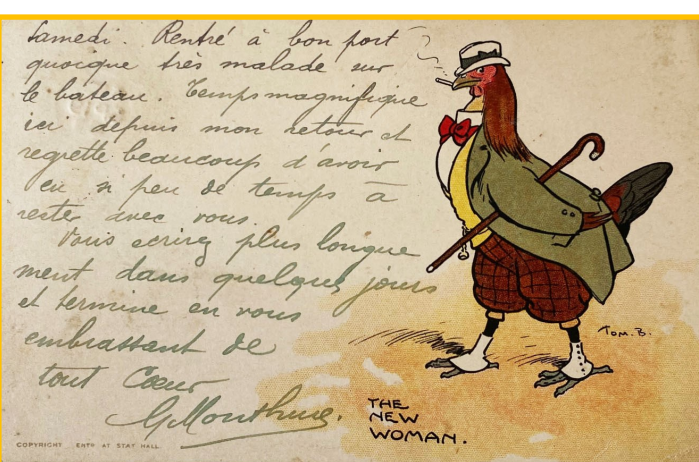 Samedi. Rentré à bon port
quoique très malade sur
le bateau. Temps magnifique
ici depuis mon retour et
regrette beaucoup d'avoir
eu si peu de temps à
rester avec vous.
Vous écrirez plus longue
ment dans quelques jours
et termine en vous
embrassant de
tout Cœur
TOM. B.
THE
NEW
WOMAN.
COPYRIGHT ENTD AT STAT HALL.